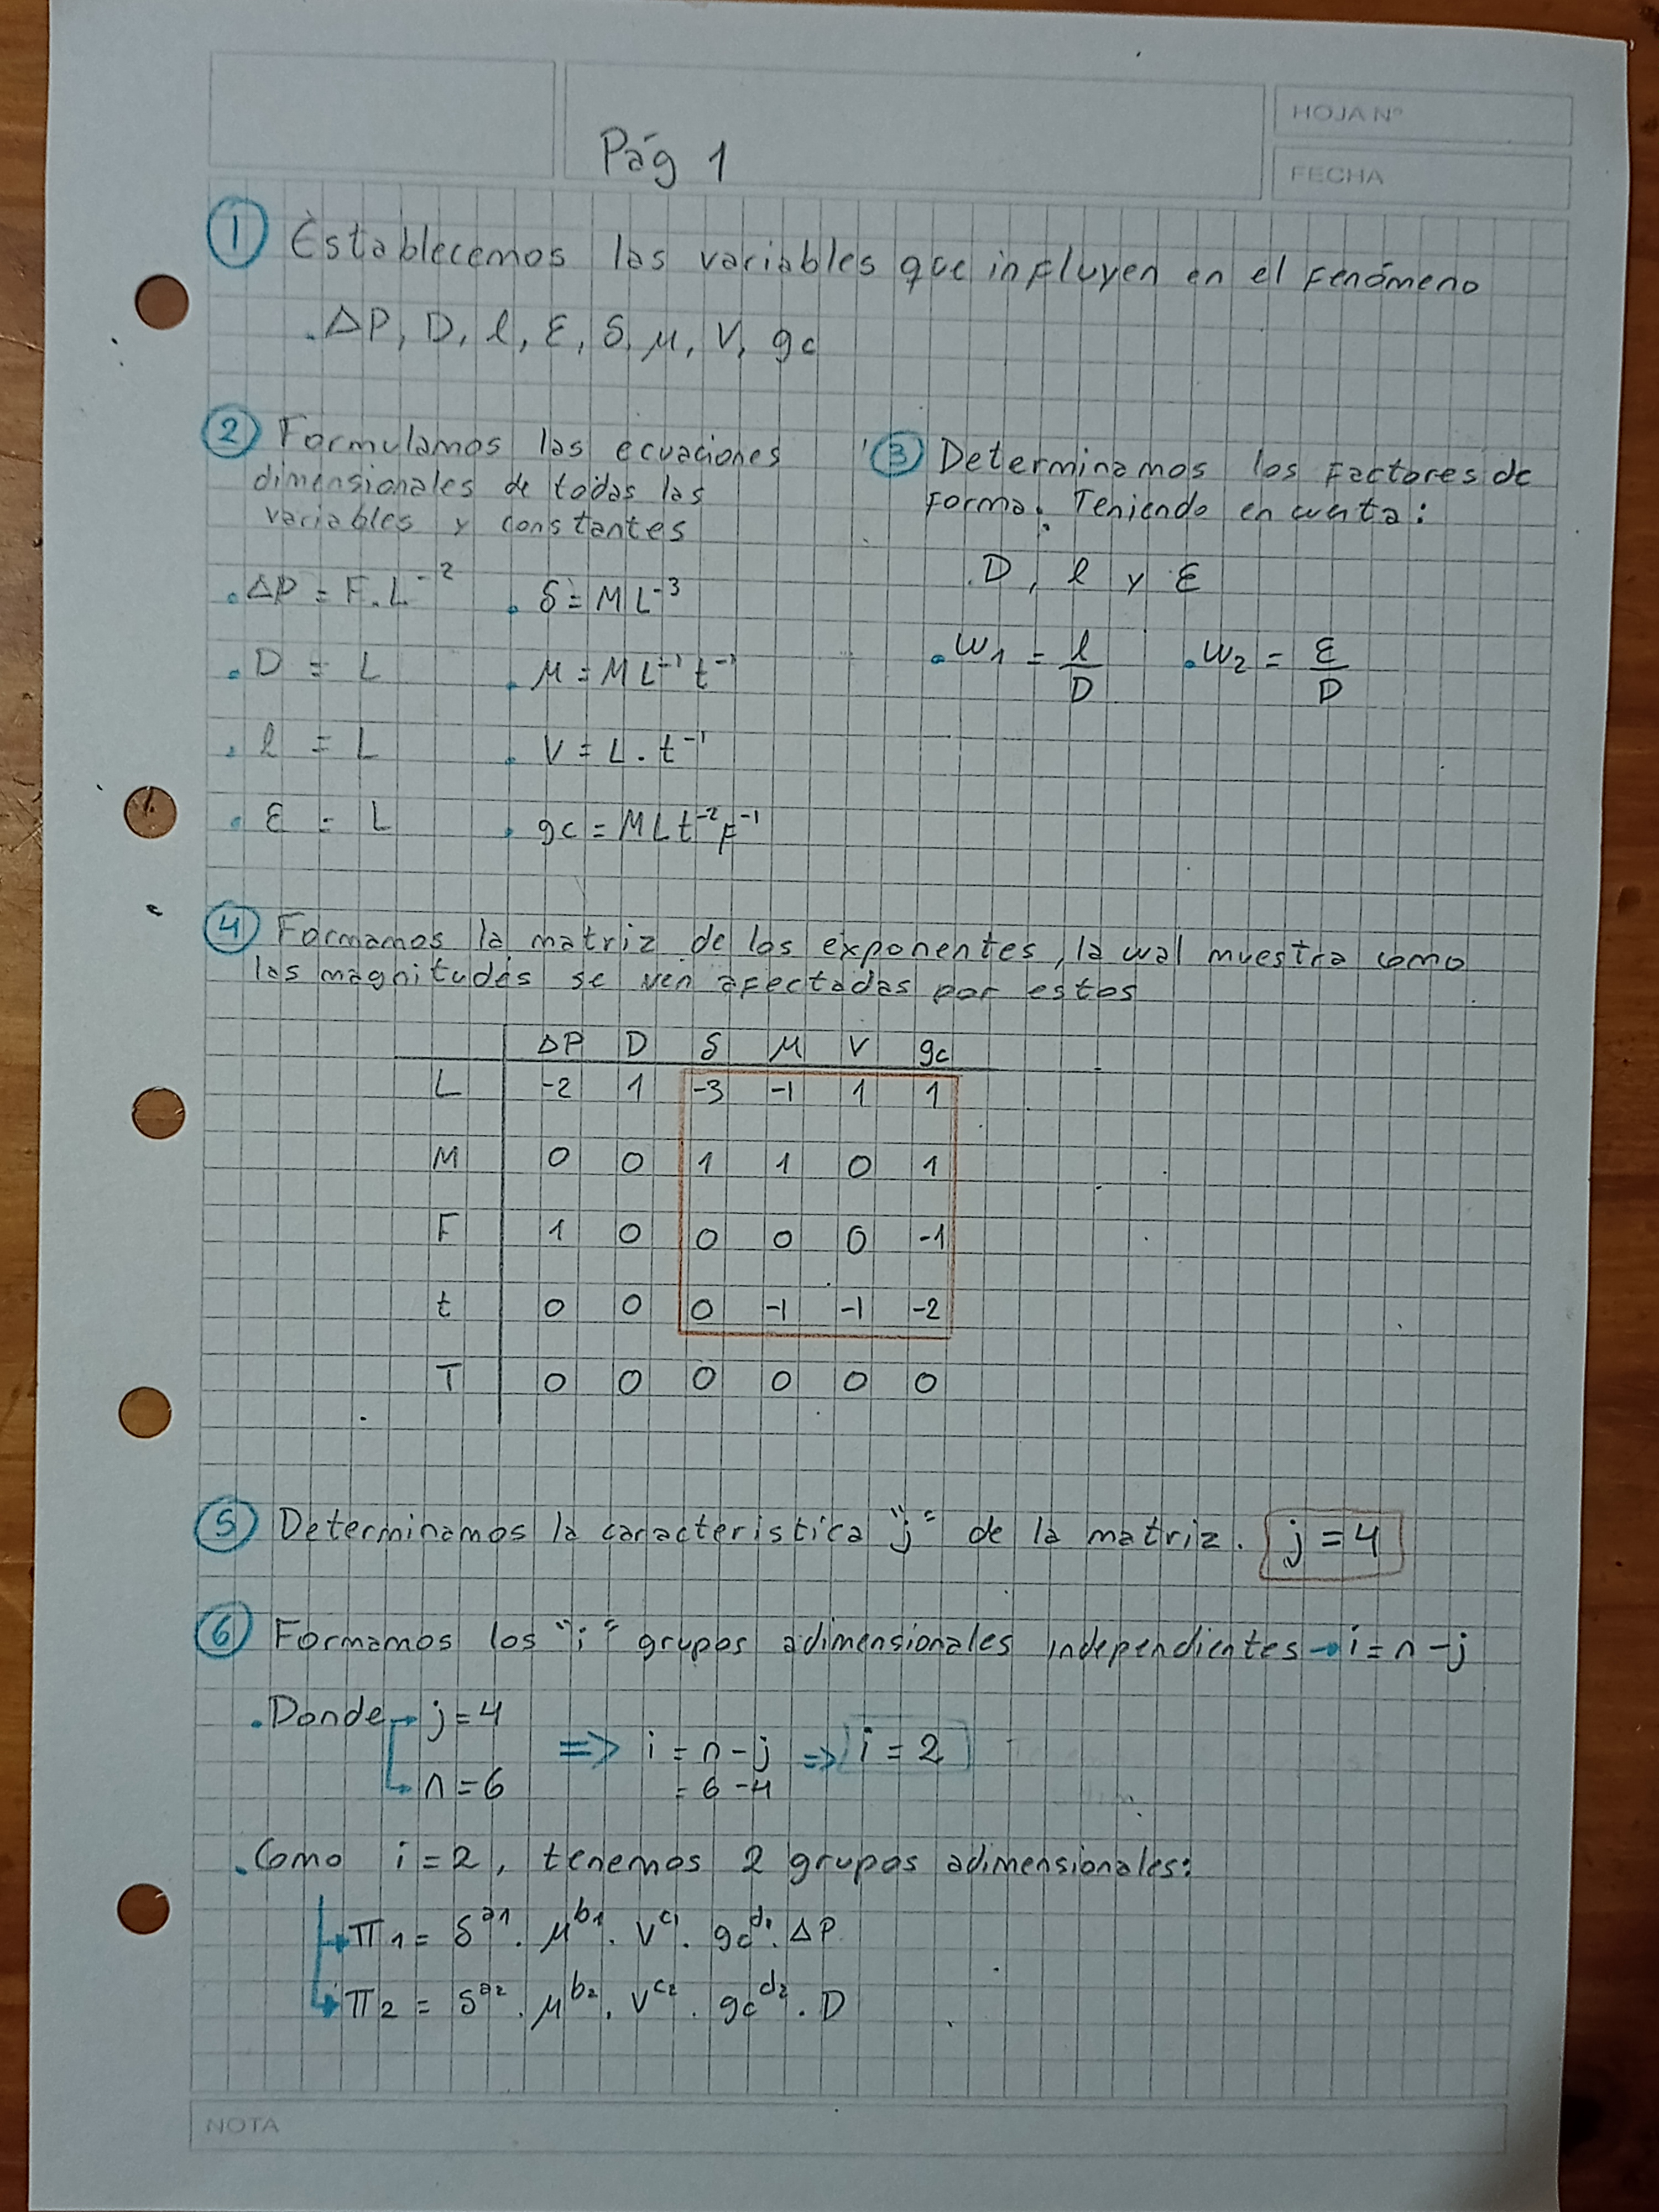 HOJA Nº
Pág 1
FECHA
1 Establecemos las variables que influyen en el fenómeno
. ΔP, D, l, ε, δ, μ, V, gc
2 Formulamos las ecuaciones
dimensionales de todas las
variables y constantes
. ΔP = F.L⁻² . δ = ML⁻³
. D = L . μ = ML⁻¹t⁻¹
. l = L . V = L.t⁻¹
. ε = L . gc = MLt⁻²F⁻¹
3 Determinamos los factores de
forma. Teniendo en cuenta:
.D, l y ε
. W1 = l/D . W2 = ε/D
4 Formamos la matriz de los exponentes, la cual muestra como
las magnitudes se ven afectadas por estos
ΔP D δ μ V gc
L -2 1 -3 -1 1 1
M 0 0 1 1 0 1
F 1 0 0 0 0 -1
t 0 0 0 -1 -1 -2
T 0 0 0 0 0 0
5 Determinamos la caracteristica "j" de la matriz. j = 4
6 Formamos los "i" grupos adimensionales independientes → i = n - j
. Donde → j = 4
→ n = 6
=> i = n - j => i = 2
= 6 - 4
. Como i = 2, tenemos 2 grupos adimensionales:
→ π1 = δ^a1 . μ^b1 . V^c1 . gc^d1 . ΔP
→ π2 = δ^a2 . μ^b2 . V^c2 . gc^d2 . D
NOTA